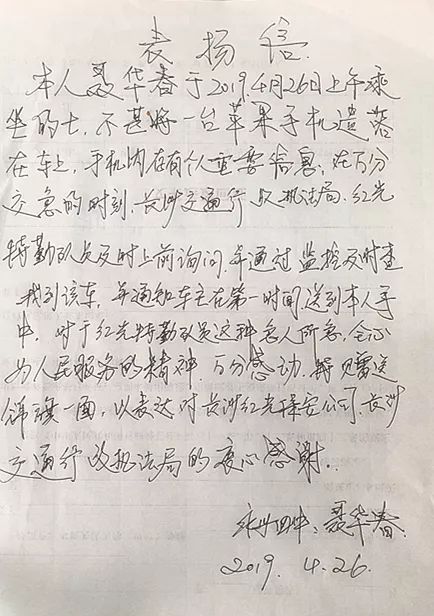 表扬信
本人聂华春于2019.4月26日上午乘
坐的士,不甚将一台苹果手机遗落
在车上,手机内存有个人重要信息,在万分
交急的时刻,长沙交通行政执法局、红光
特勤队员及时上前询问,并通过监控及时查
找到该车,并通知车主在第一时间送到本人手
中,对于红光特勤队员这种急人所急,全心
为人民服务的精神万分感动,特赠送
锦旗一面,以表达对长沙红光保安公司、长沙
交通行政执法局的衷心感谢.
永州四中:聂华春
2019. 4. 26.